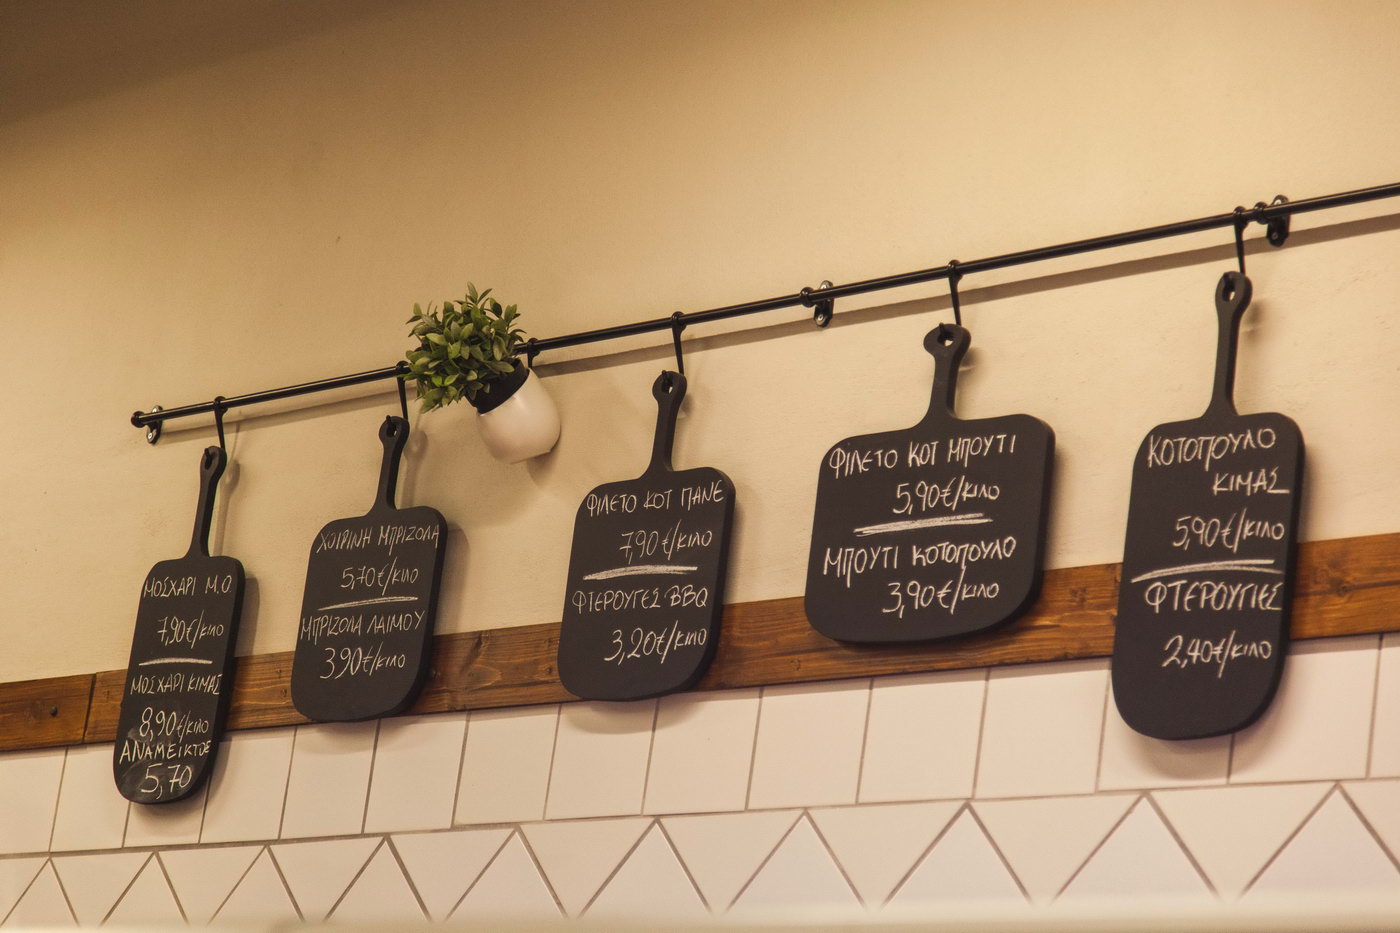 ΜΟΣΧΑΡΙ Μ.Ο.
7,90€/κιλο
ΜΟΣΧΑΡΙ ΚΙΜΑΣ
8,90€/κιλο
ΑΝΑΜΕΙΚΤΟΣ
5,70
ΧΟΙΡΙΝΗ ΜΠΡΙΖΟΛΑ
5,70€/κιλο
ΜΠΡΙΖΟΛΑ ΛΑΙΜΟΥ
3,90€/κιλο
ΦΙΛΕΤΟ ΚΟΤ ΠΑΝΕ
7,90€/κιλο
ΦΤΕΡΟΥΓΕΣ BBQ
3,20€/κιλο
ΦΙΛΕΤΟ ΚΟΤ ΜΠΟΥΤΙ
5,90€/κιλο
ΜΠΟΥΤΙ ΚΟΤΟΠΟΥΛΟ
3,90€/κιλο
ΚΟΤΟΠΟΥΛΟ
ΚΙΜΑΣ
5,90€/κιλο
ΦΤΕΡΟΥΓΙΕΣ
2,40€/κιλο